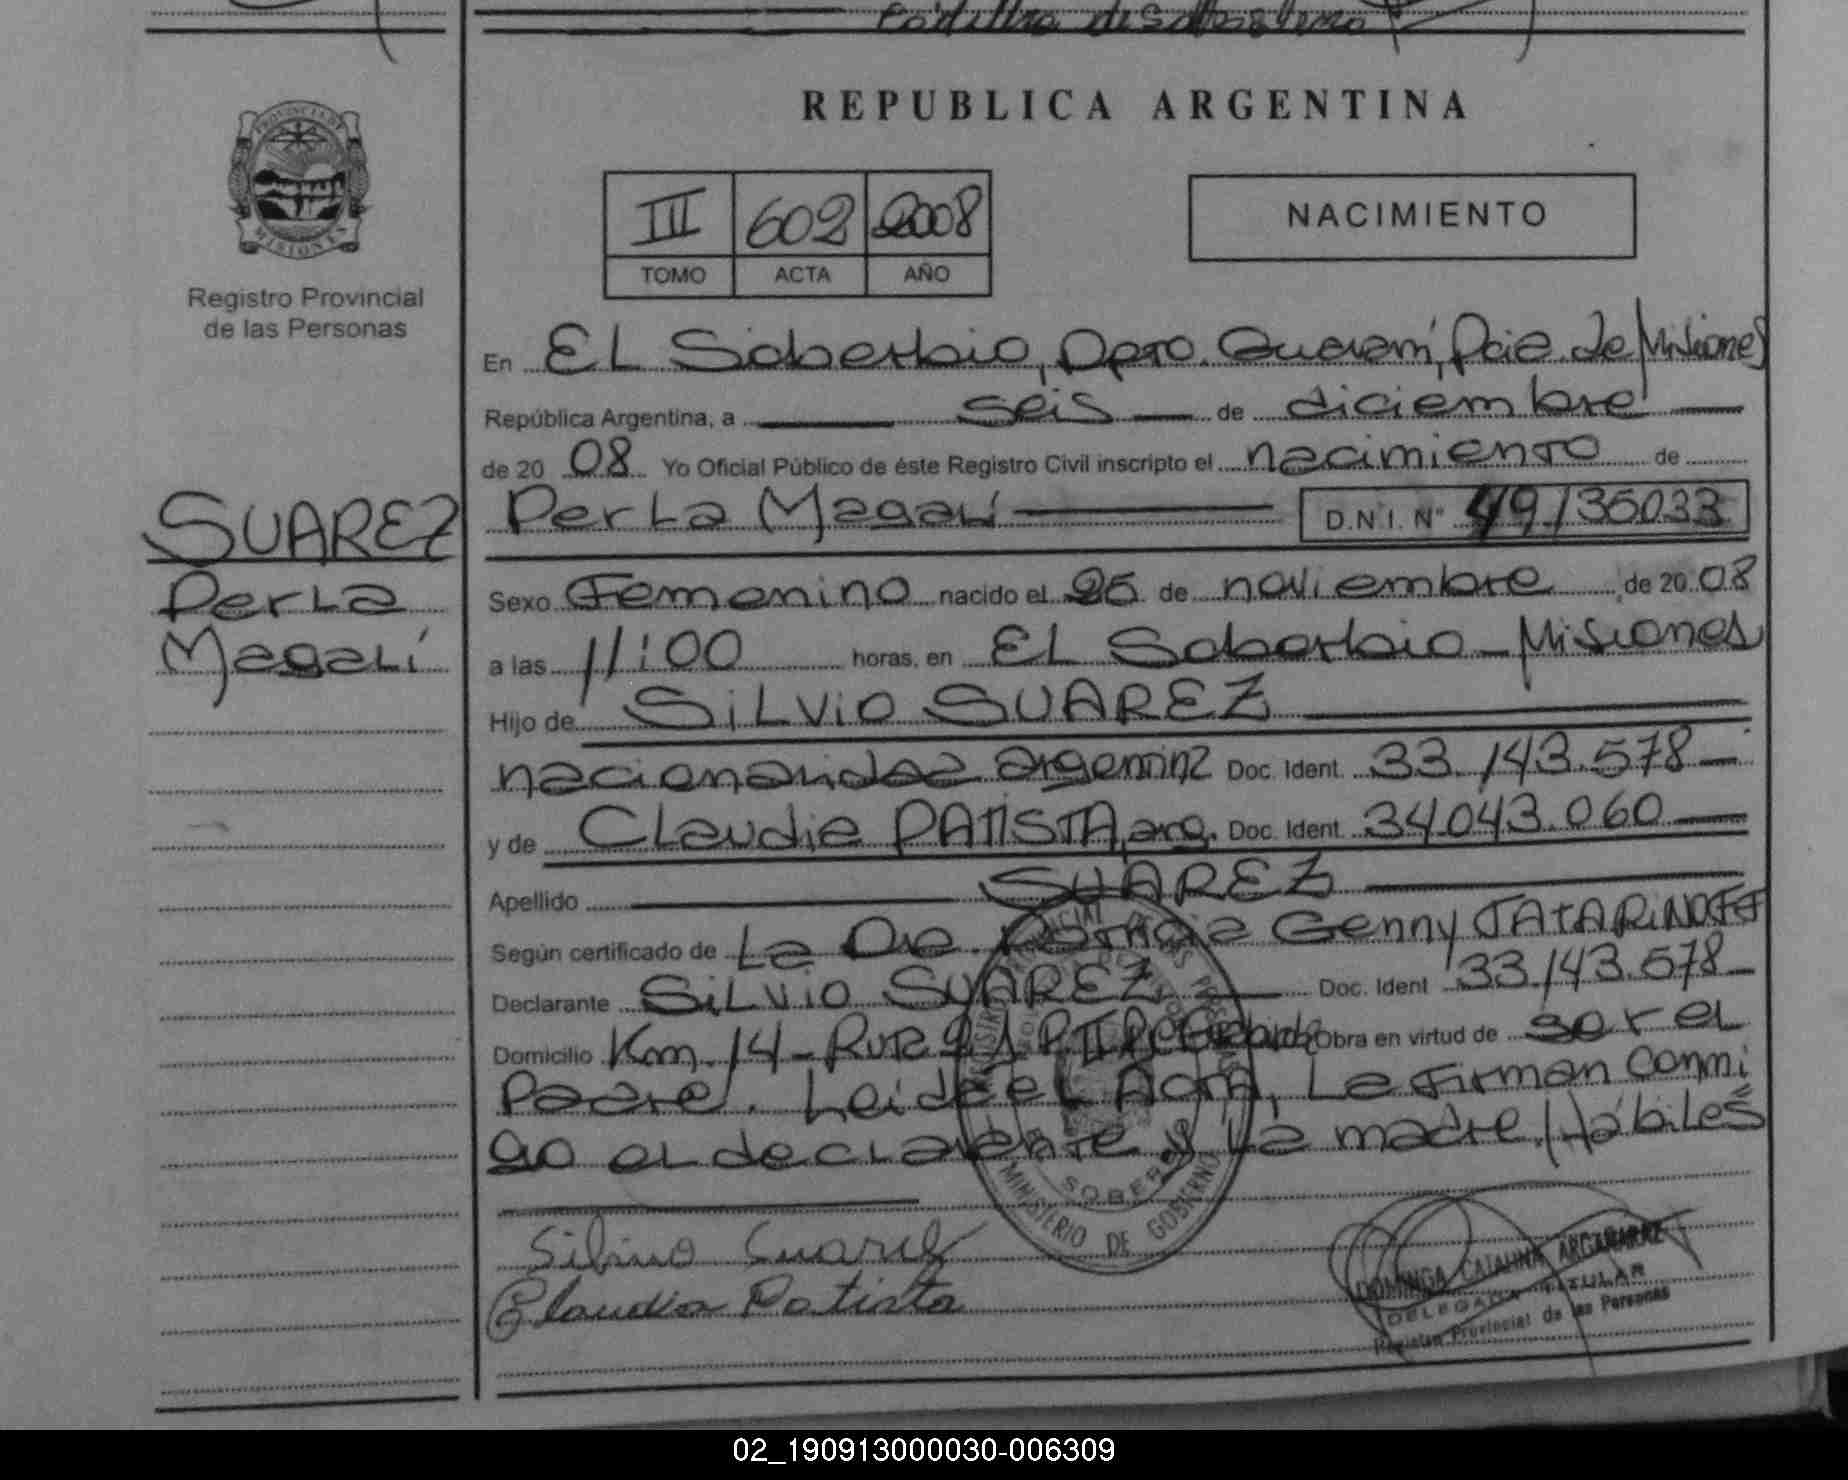 REPUBLICA ARGENTINA
PROVINCIA DE
MISIONES
Registro Provincial
de las Personas
III 602 2008
TOMO ACTA AÑO
NACIMIENTO
En EL Soberbio, Dpto. Guaraní, Pcia. de Misiones
República Argentina, a seis de diciembre
de 20 08 Yo Oficial Público de éste Registro Civil inscripto el nacimiento de
SUAREZ
Perla
Magalí
Perla Magalí D.N.I. Nº 49135033
Sexo Femenino nacido el 25 de noviembre de 20 08
a las 11:00 horas, en EL Soberbio - Misiones
Hijo de SiLViO SUAREZ
nacionalidad argentina Doc. Ident. 33.143.578
y de Claudia PATISTA, arg. Doc. Ident. 34043.060
Apellido SUAREZ
Según certificado de La Dra. Genny TATARiNOFF
Declarante SiLViO SUAREZ Doc. Ident 33.143.578
Domicilio Km. 14 - Ruta Obra en virtud de ser el
Padre. Leída el Acta, La firman conmi
go el declarante y La madre. Hábiles
MINISTERIO DE GOBIERNO
Silvio Suarez
Claudia Patista
DOMINGA CATALINA ARGAÑARAZ
DELEGADA TITULAR
Registro Provincial de las Personas
02_190913000030-006309